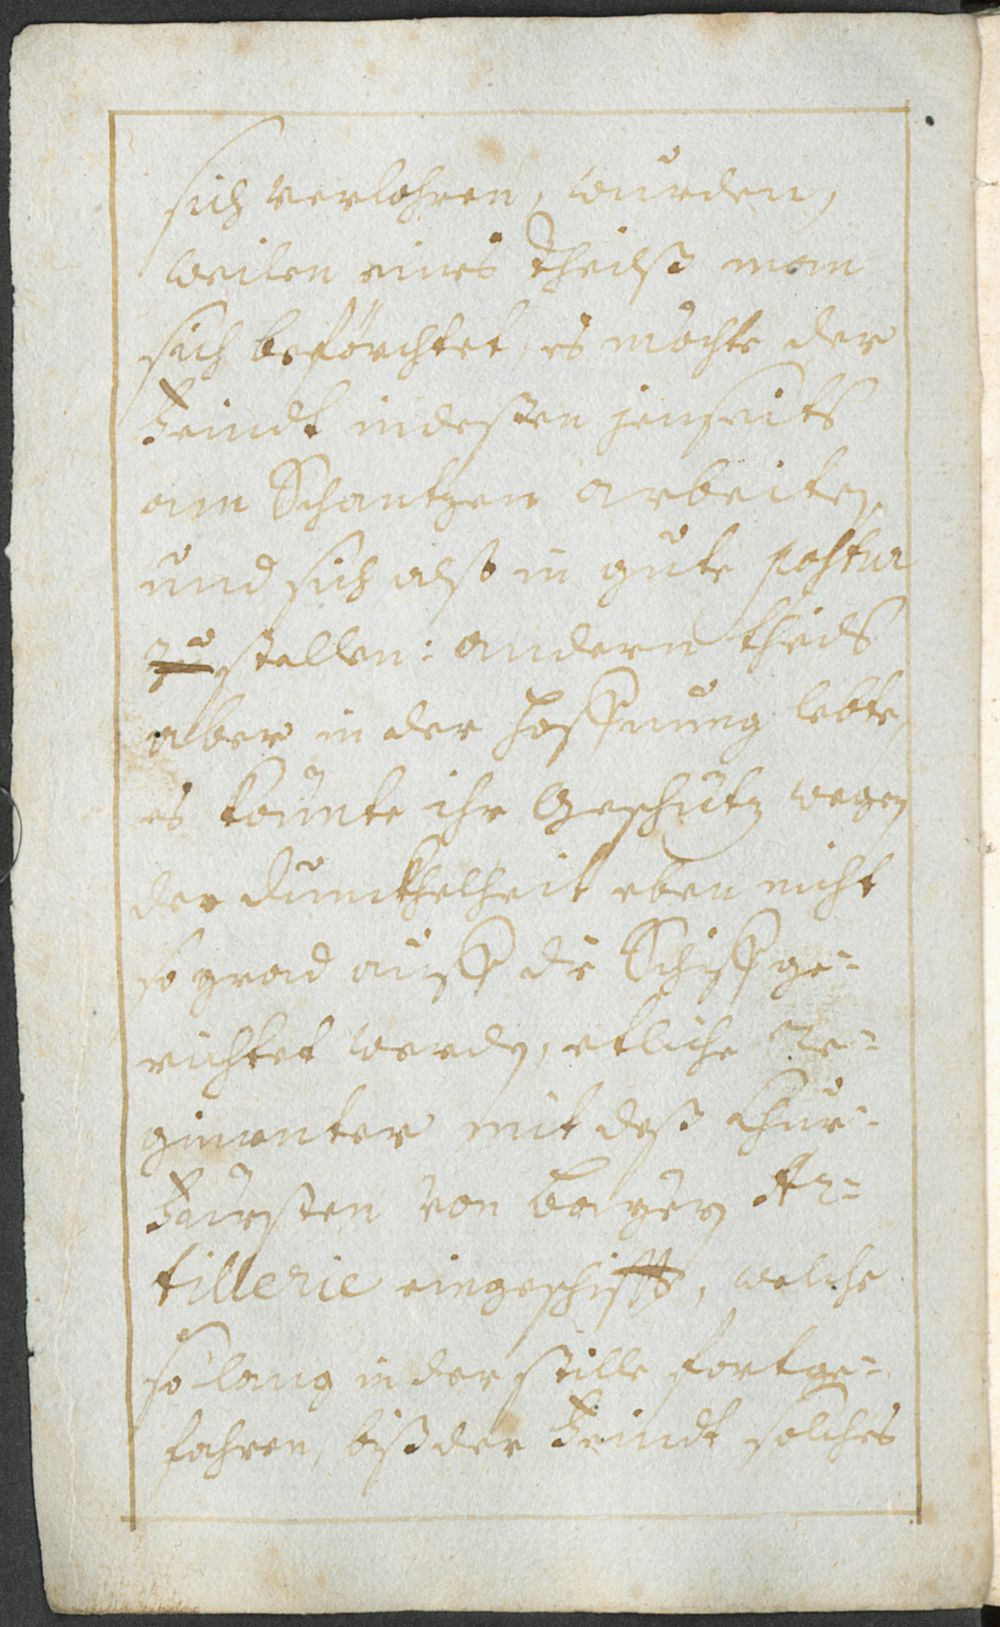 sich verlohren, wurden,
weilen eines Theilß man
sich beförchtet, es möchte der
Feindt indeßen jenseits
am Schantzen arbeiten,
und sich also in gute postur
zu stellen: andern theils
aber in der hoffnung lebte,
es könnte ihr Geschütz wegen
der dunckhelheit eben nicht
so grad auff die Schiff ge-
richtet werden, etliche Re-
gimenter mit deß Chur-
Fürsten von Bayern Ar-
tillerie eingeschifft, welche
so lang in der stille fortge-
fahren, biß der Feindt solches